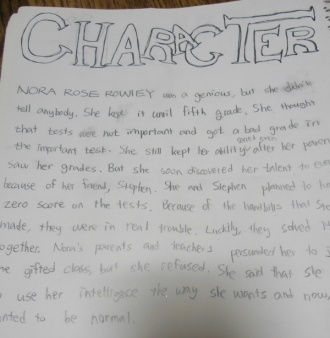 CHARACTER
NORA ROSE ROWLEY was a genious, but she didn't
tell anybody. She kept it until fifth grade. She thought
that tests were not important and got a bad grade in
the important test. She still kept her ability after her paren
saw her grades. But she soon discovered her talent to
because of her friend, Stephen. She and Stephen planned to
zero score on the tests. Because of the that
made, they were in real trouble. Luckily, they solved it
ogether. Nora's parents and teachers persuaded her to
gifted class, but she refused. She said that she
use her intelligece the way she wants and now,
nted to be normal.